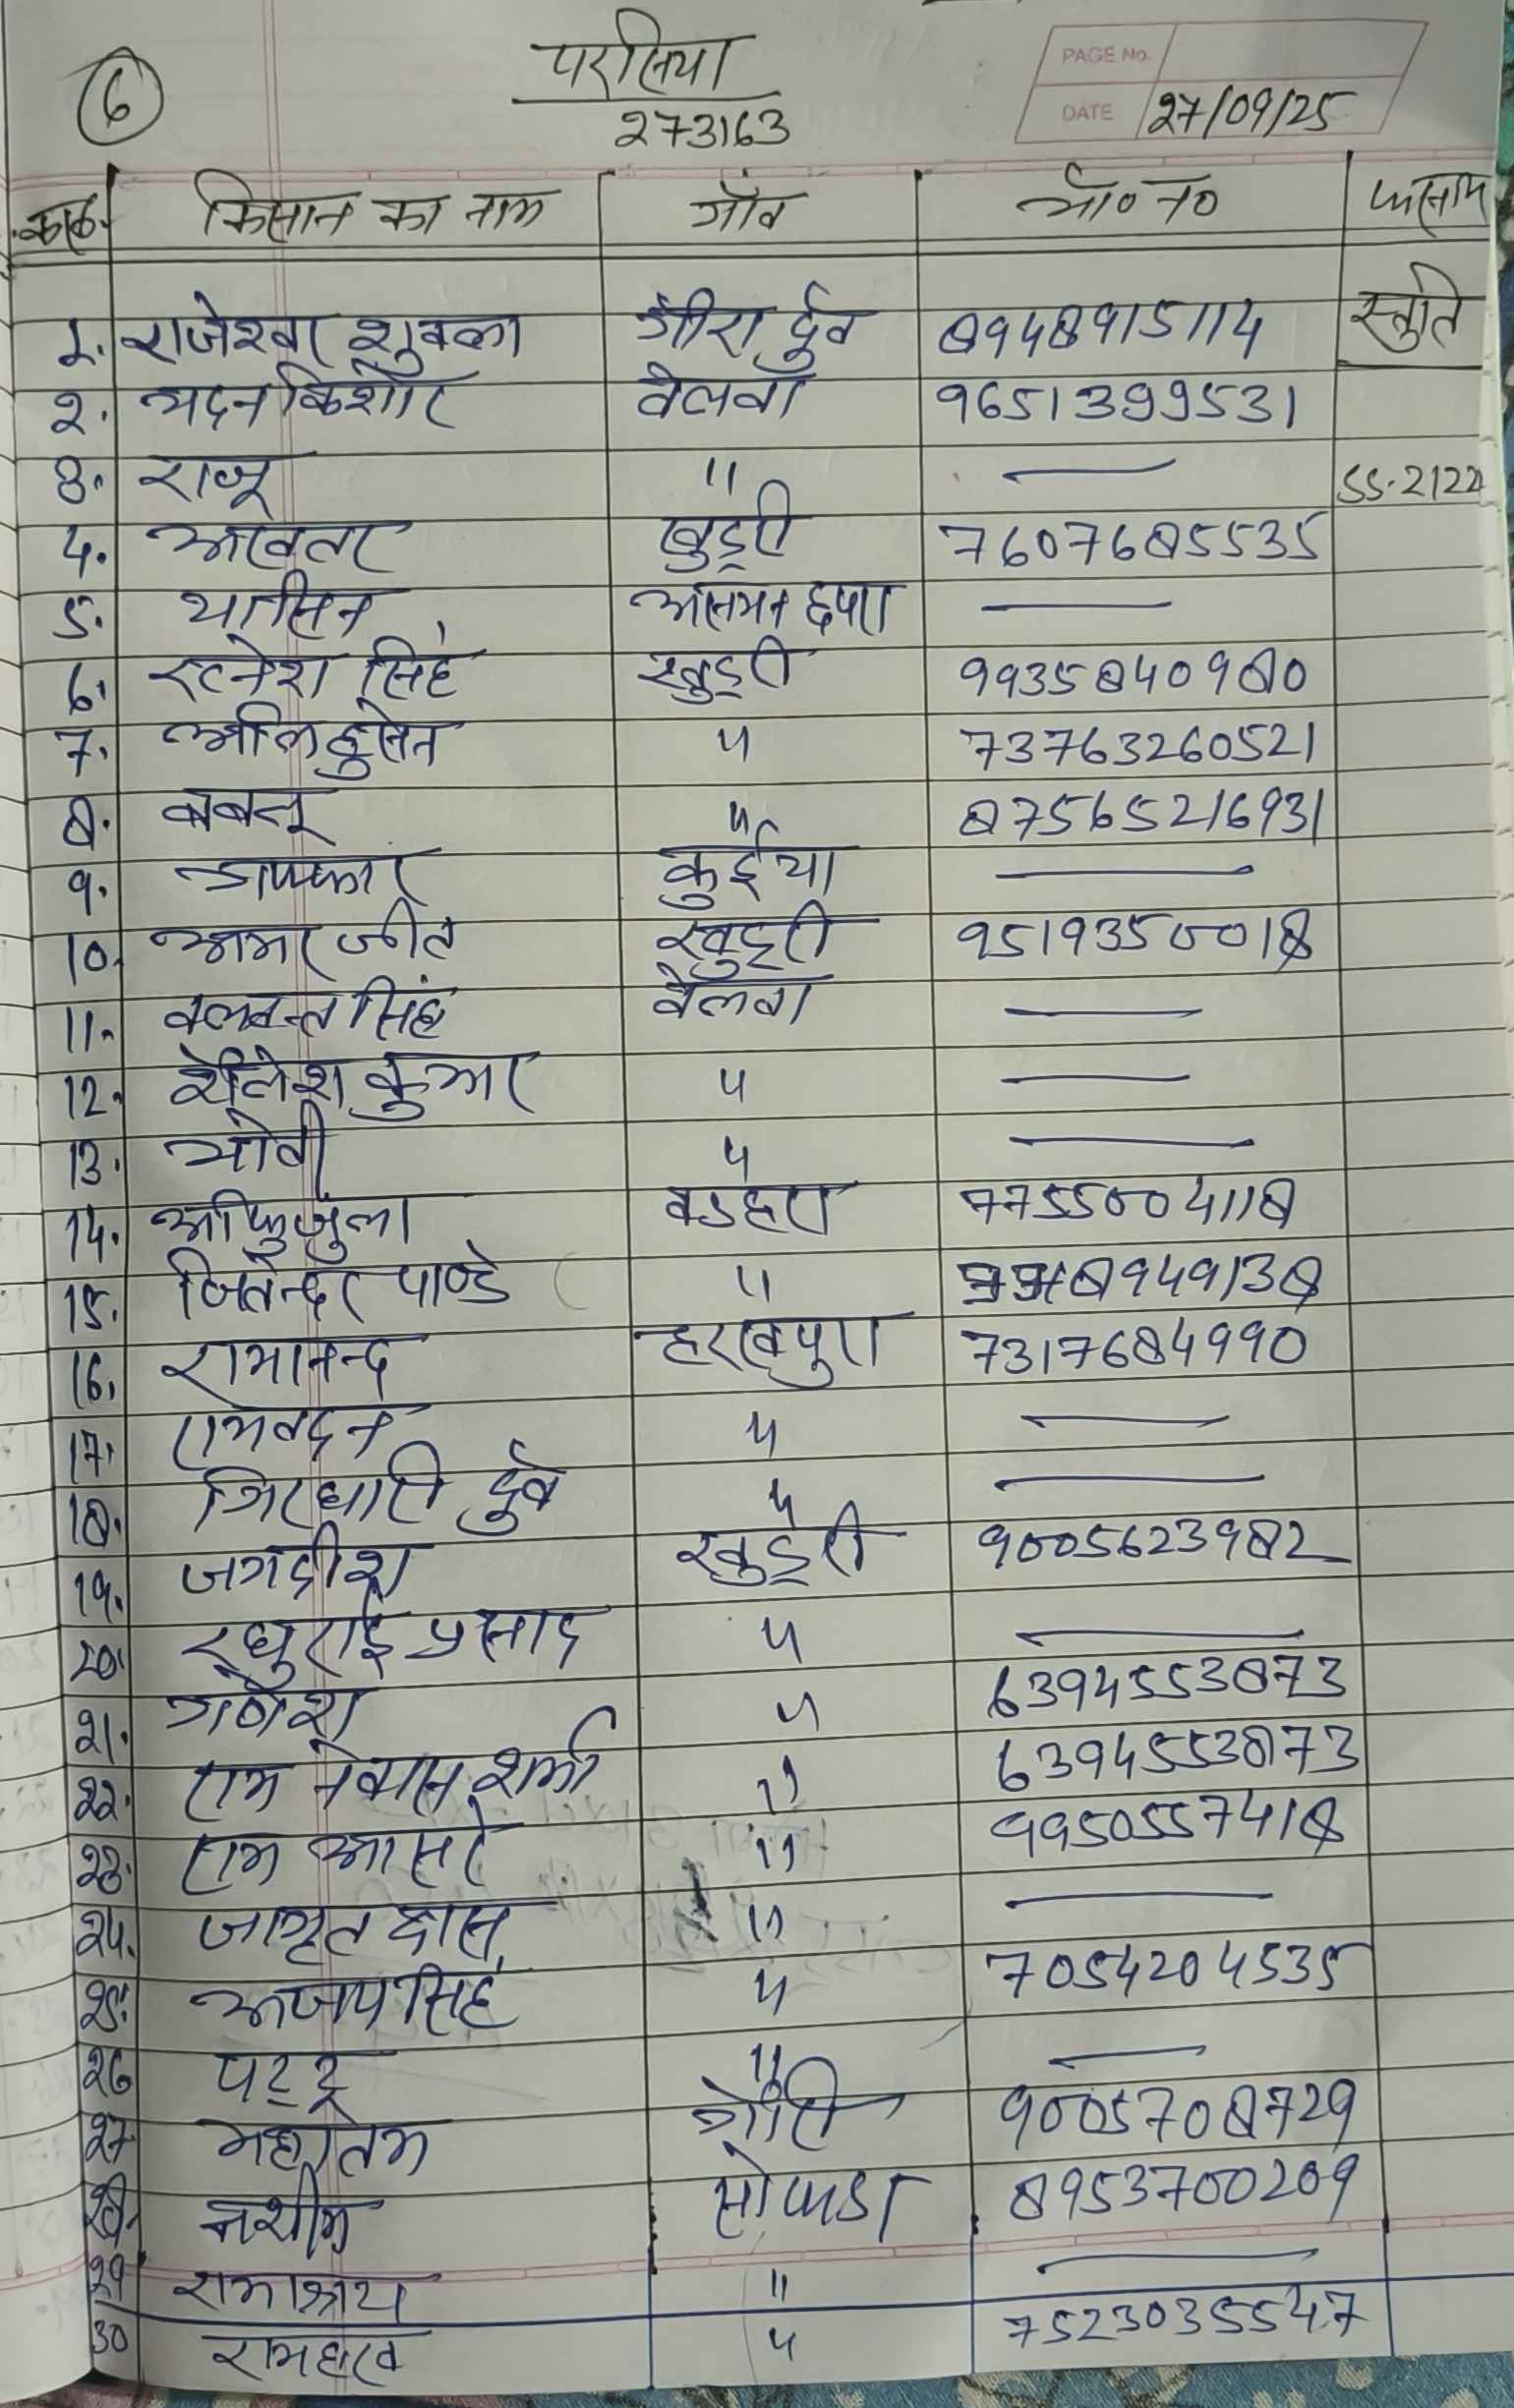 6
परसिया
273163
PAGE No.
DATE 27/09/25
किसान का नाम गाँव मो० न०
1. राजेश्वर शुक्ला गौरा दुबे 8948915114 स्तुति
2. मदन किशोर वेलवाँ 9651399531
3. राजू " —
SS-2122
4. अख्तर खुड़री 7607685535
5. यासिन —
6. रत्नेश सिंह खुड़री 9935840980
7. अलि हुसेन " 73763260521
8. बबलू " 87565216931
9. कुईया —
10. अमर जीत खुड़री 9519350018
11. वलवन्त सिंह वेलवा —
12. शैलेश कुमार " —
13. "  —
14. वडहरा 7755004118
15. जितेन्दर पाण्डे " 8949138
16. रामानन्द हरखपुरा 7317684990
17. रामवदन " —
18. गिरधारी दुबे " —
19. जगदीश खुड़री 9005623982
20. रघुराई प्रसाद " —
21. गणेश " 6394553873
22. राम नेवास शर्मा " 6394553873
23. राम आसरे " 9950557418
24. जागृत दास " —
25. अजय सिंह " 7054204535
26 पट्टू " —
27 महातम गौरी 9005708729
28. नशीम सोफडा 8953700209
29 रामाश्रय " —
30 रामहरख " 7523035547